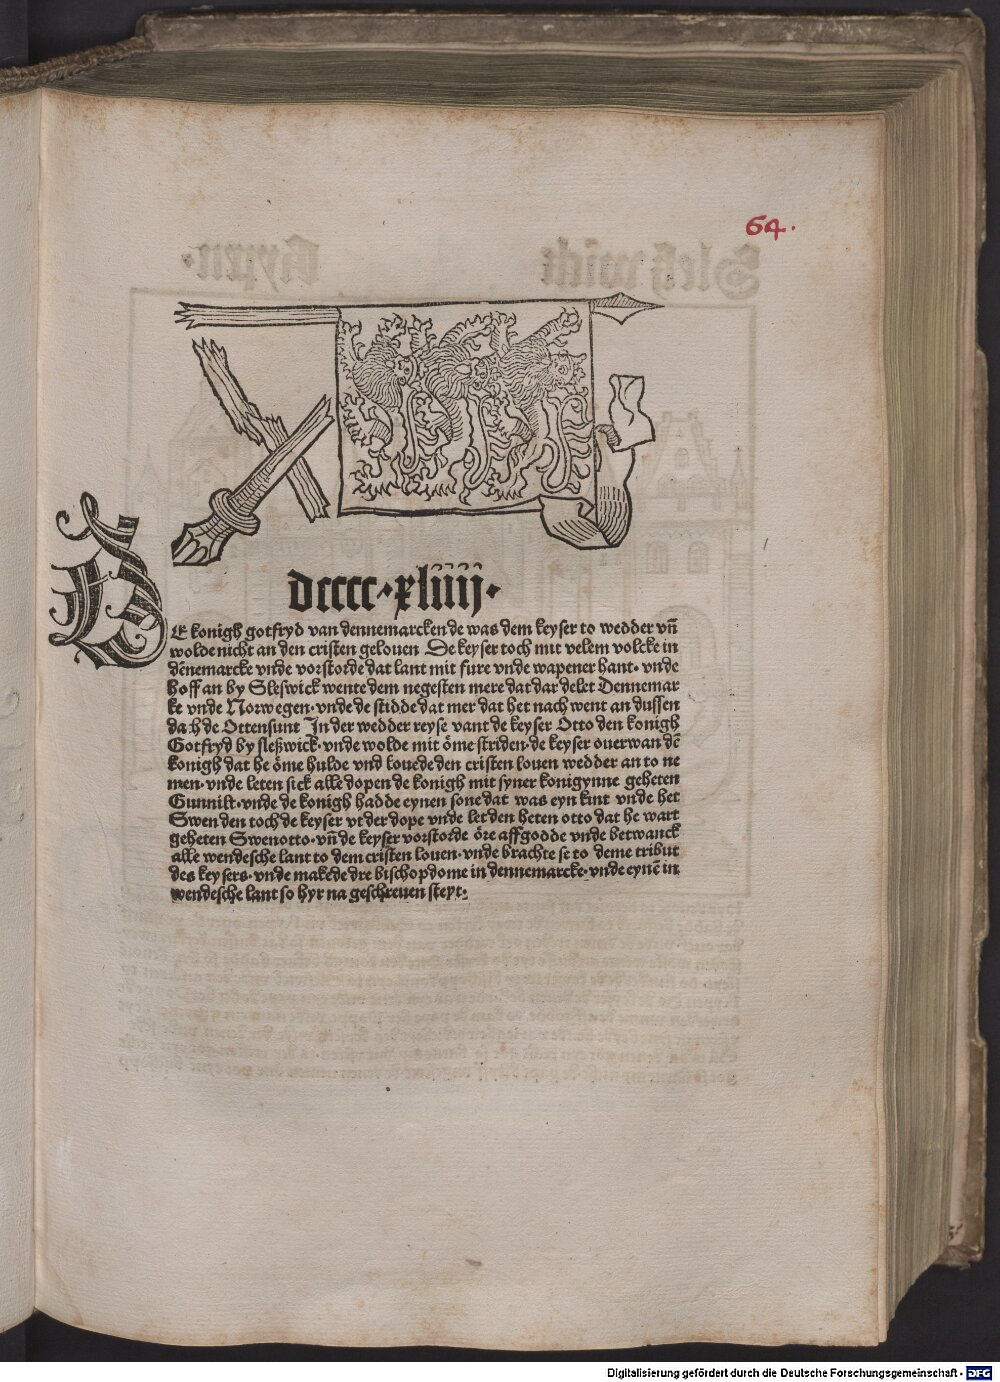 64.
dcccc·xliiij·
DE konigh gotfryd van dennemarcken de was dem keyser to wedder vn̄
wolde nicht an den cristen gelouen De keyser toch mit velem volcke in
dēnemarcke vnde vorstorde dat lant mit fure vnde wapener hant· vnde
hoff an by Sleswick wente dem negesten mere dat dar delet Dennemar
ke vnde Norwegen· vnde de stidde dat mer dat het nach went an dussen
dach de Ottensunt In der wedder reyse vant de keyser Otto den konigh
Gotfryd by sleßwick· vnde wolde mit öme striden· de keyser ouerwan dē
konigh dat he öme hulde vnd louede den cristen louen wedder an to ne
men· vnde leten sick alle dopen de konigh mit syner konigynne geheten
Gunnilt· vnde de konigh hadde eynen sone dat was eyn kint vnde het
Swen den toch de keyser vt der dope vnde let den heten otto dat he wart
geheten Swenotto· vn̄ de keyser vorstorde öre affgodde vnde betwanck
alle wendesche lant to dem cristen louen· vnde brachte se to deme tribut
des keysers· vnde makede dre bischopdome in dennemarcke· vnde eynē in
wendesche lant so hyr na geschreuen steyt·
Digitalisierung gefördert durch die Deutsche Forschungsgemeinschaft - DFG